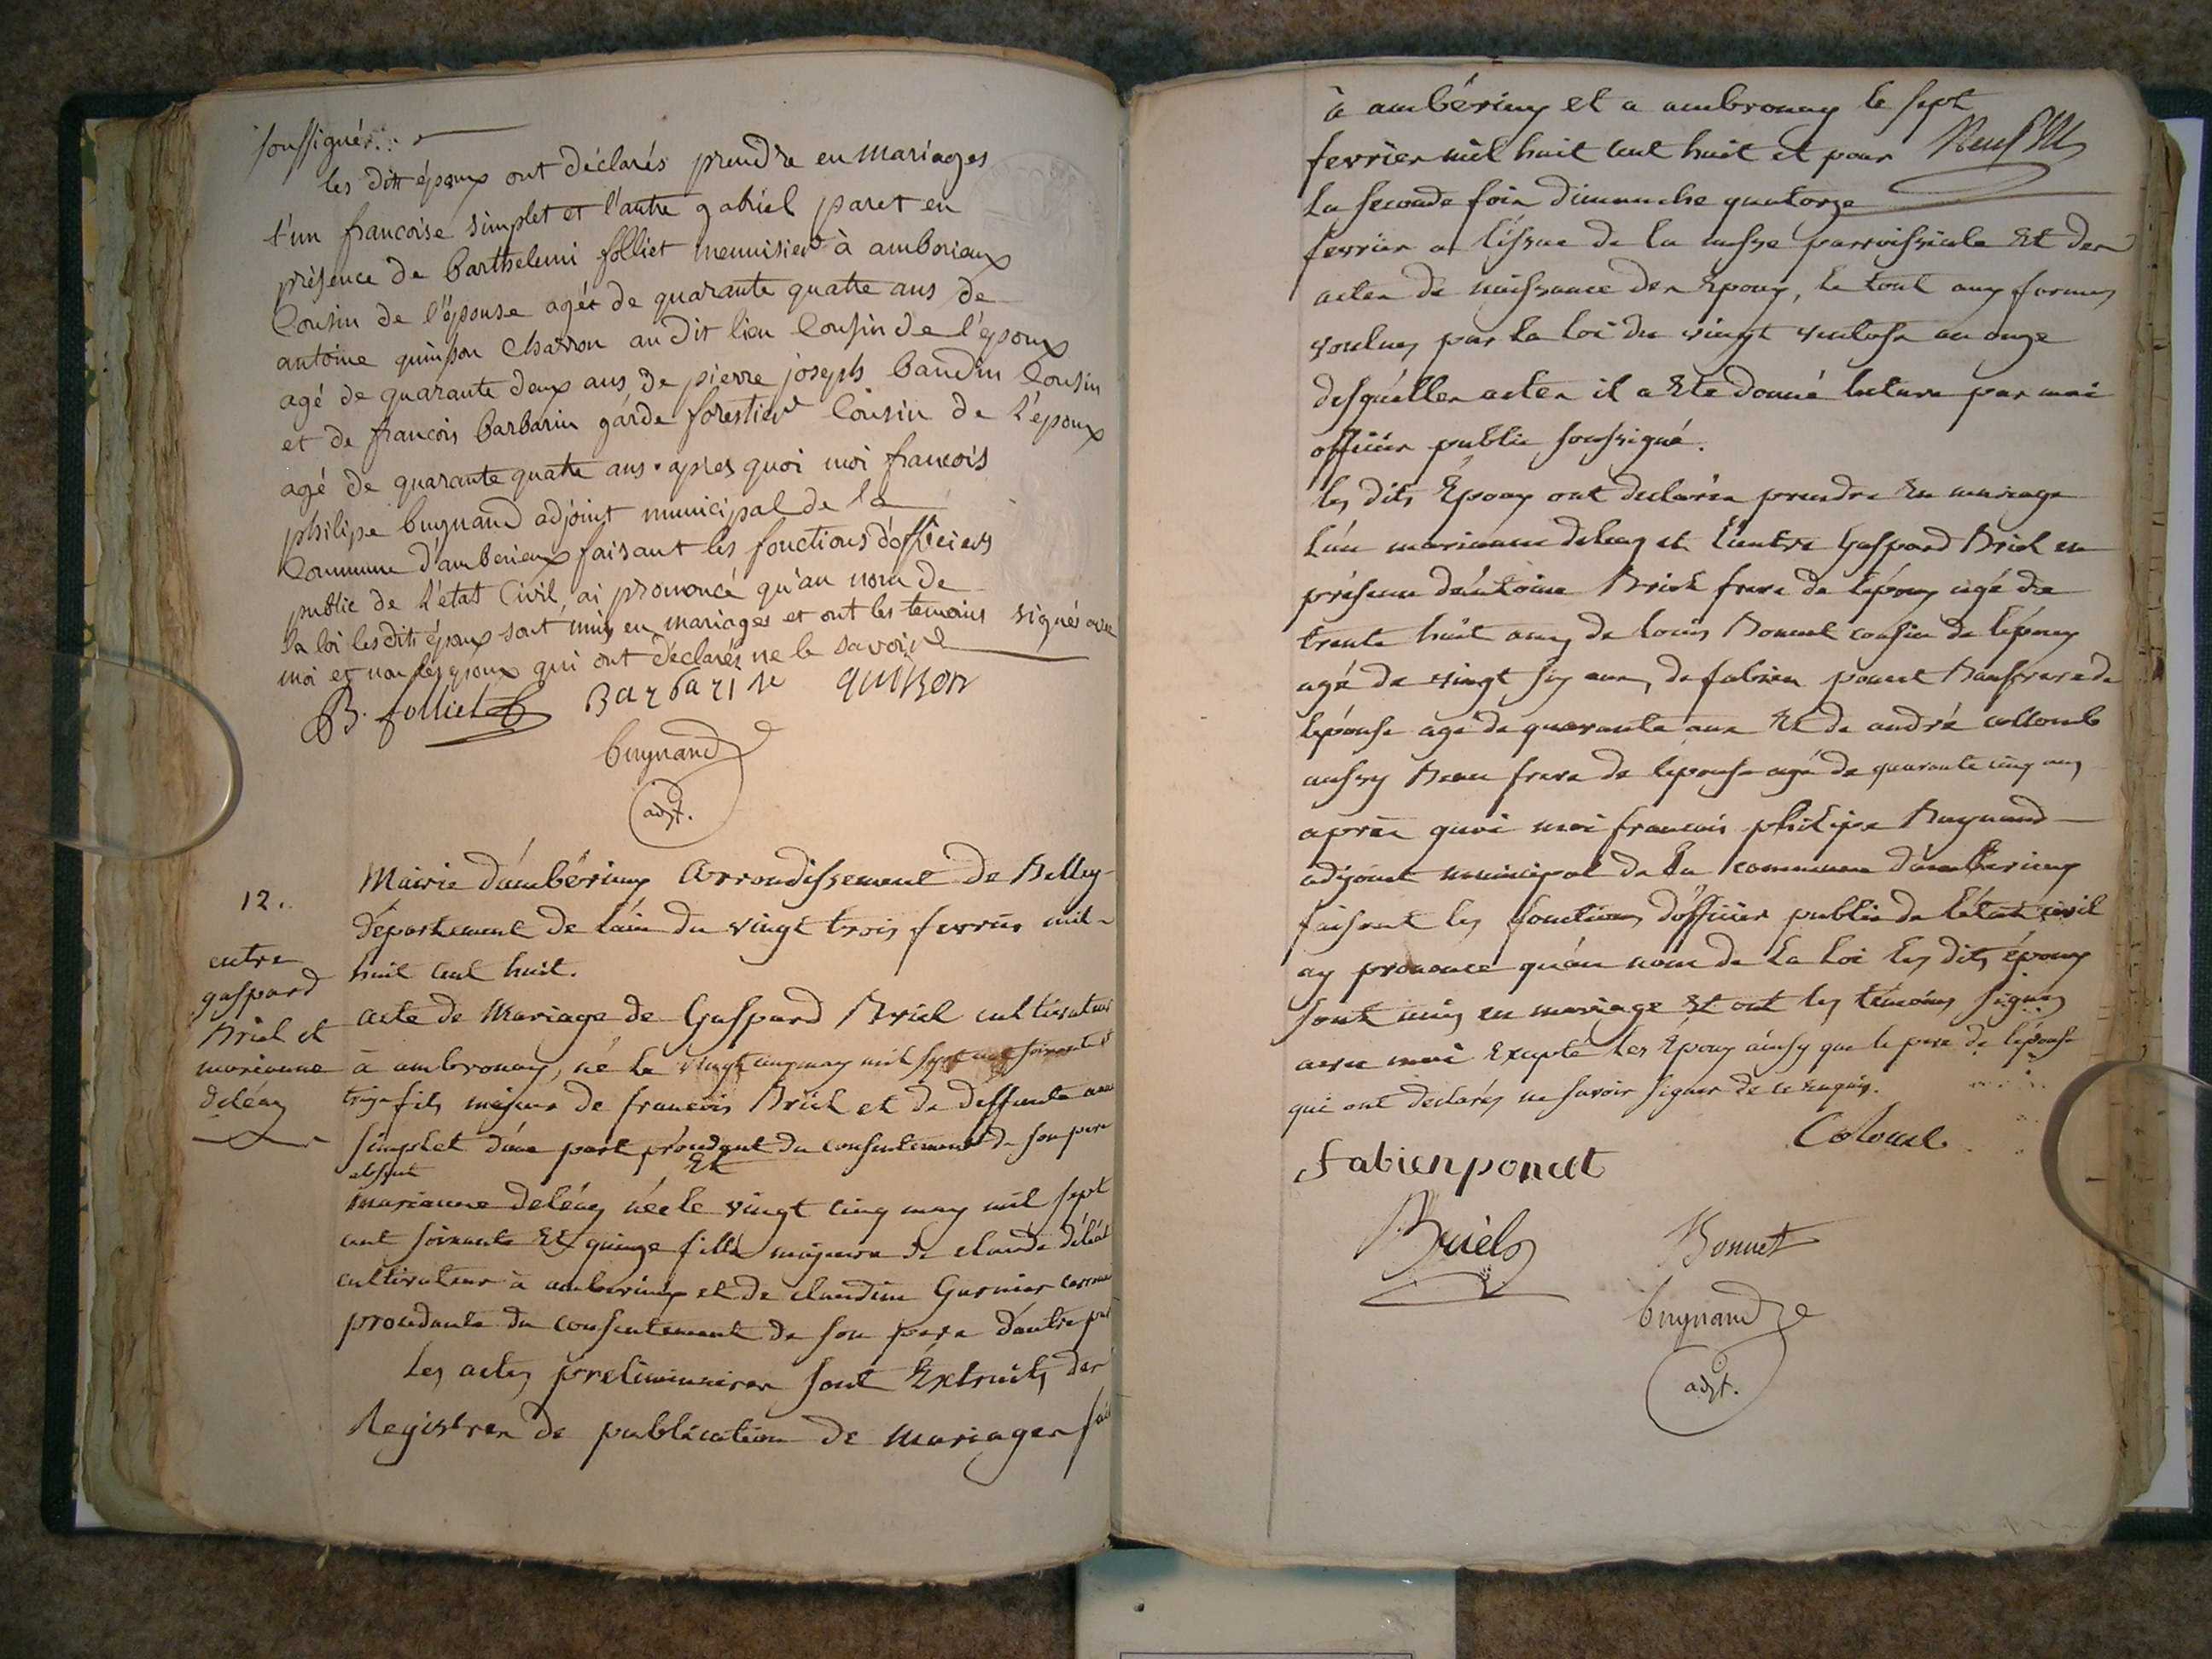 soussignés.
les ditt époux ont déclarés prendre en mariages
l'un francoise simplet et l'autre gabriel paret en
présence de barthelemi folliet mennisier à amberieux
Cousin de l'épouse agés de quarante quatre ans de
antoine quinson charron au dit lieu Cousin de l'époux
agé de quarante deux ans de pierre joseph baudin Cousin
et de francois barbarin garde forestier Cousin de l'époux
agé de quarante quatre ans. apres quoi moi francois
philipe bugnand adjoint municipal de la
Commune d'amberieux faisant les fonctions d'officiers
public de l'état Civil, ai prononcé qu'au nom de
la loi les ditt époux sont unis en mariages et ont les temoins signés avec
moi et non les époux qui ont déclarés ne le savoir
B. folliet barbarin quinson
bugnand
adjt.
12.
entre
gaspard
Briel et
marianne
deléaz
Mairie d'ambérieux Arrondissement de Belley
département de l'ain du vingt trois fevrier mil
huit cent huit.
acte de Mariage de Gaspard Briel cultivateur
à ambronay, né le vingt cinq may mil sept cent soixante et
treize fils majeur de francois Briel et de deffunte
simplet d'une part procedant du consentement de son pere
absent Et
marianne deléaz née le vingt cinq may mil sept
cent soixante et quinze fille majeure de claude deléaz
cultivateur à amberieux et de claudine Garnier
procedante du consentement de son pere d'autre part
Les actes preliminaires sont Extraits des
Registres de publication de mariages fait
à ambérieux et a ambronay le sept
fevrier mil huit cent huit et pour
la seconde fois dimanche quatorze
fevrier a l'issue de la messe parroissiale et des
actes de naissance des Epoux, le tout aux formes
voulues par la loi du vingt ventose an onze
desquelles actes il a Eté donné lecture par moi
officier public soussigné.
les dits Epoux ont declarés prendre En mariage
L'un marianne deleaz et L'autre Gaspard Briel en
présence d'antoine Briel frere de l'époux agé de
trente huit ans, de Louis Bonnet cousin de l'époux
agé de vingt six ans, de fabien poncet Beaufrere de
l'épouse agé de quarante ans Et de andré collomb
aussy Beau frere de l'épouse agé de quarante cinq ans
après quoi moi francois philipe Bugnand
adjoint municipal de la commune d'amberieux
faisant les fonctions d'officier public de l'état civil
ay prononcé qu'au nom de la loi les dits époux
sont unis en mariage Et ont les témoins signés
avec moi Excepté les Epoux ainsy que le pere de l'épouse
qui ont declarés ne savoir signer de ce Enquis.
fabien poncet
Briel Bonnet
bugnand
adjt.